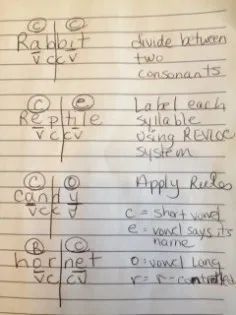 C C
Rabbit
V C C V
divide between
two
consonants
C e
Reptile
V C C V
Label each
syllable
using REVLOC
system
C O
candy
V C C V
Apply Rules
c = short vowel
e = vowel says its
name
R C
hornet
V C C V
O: vowel long
r = r-controlled